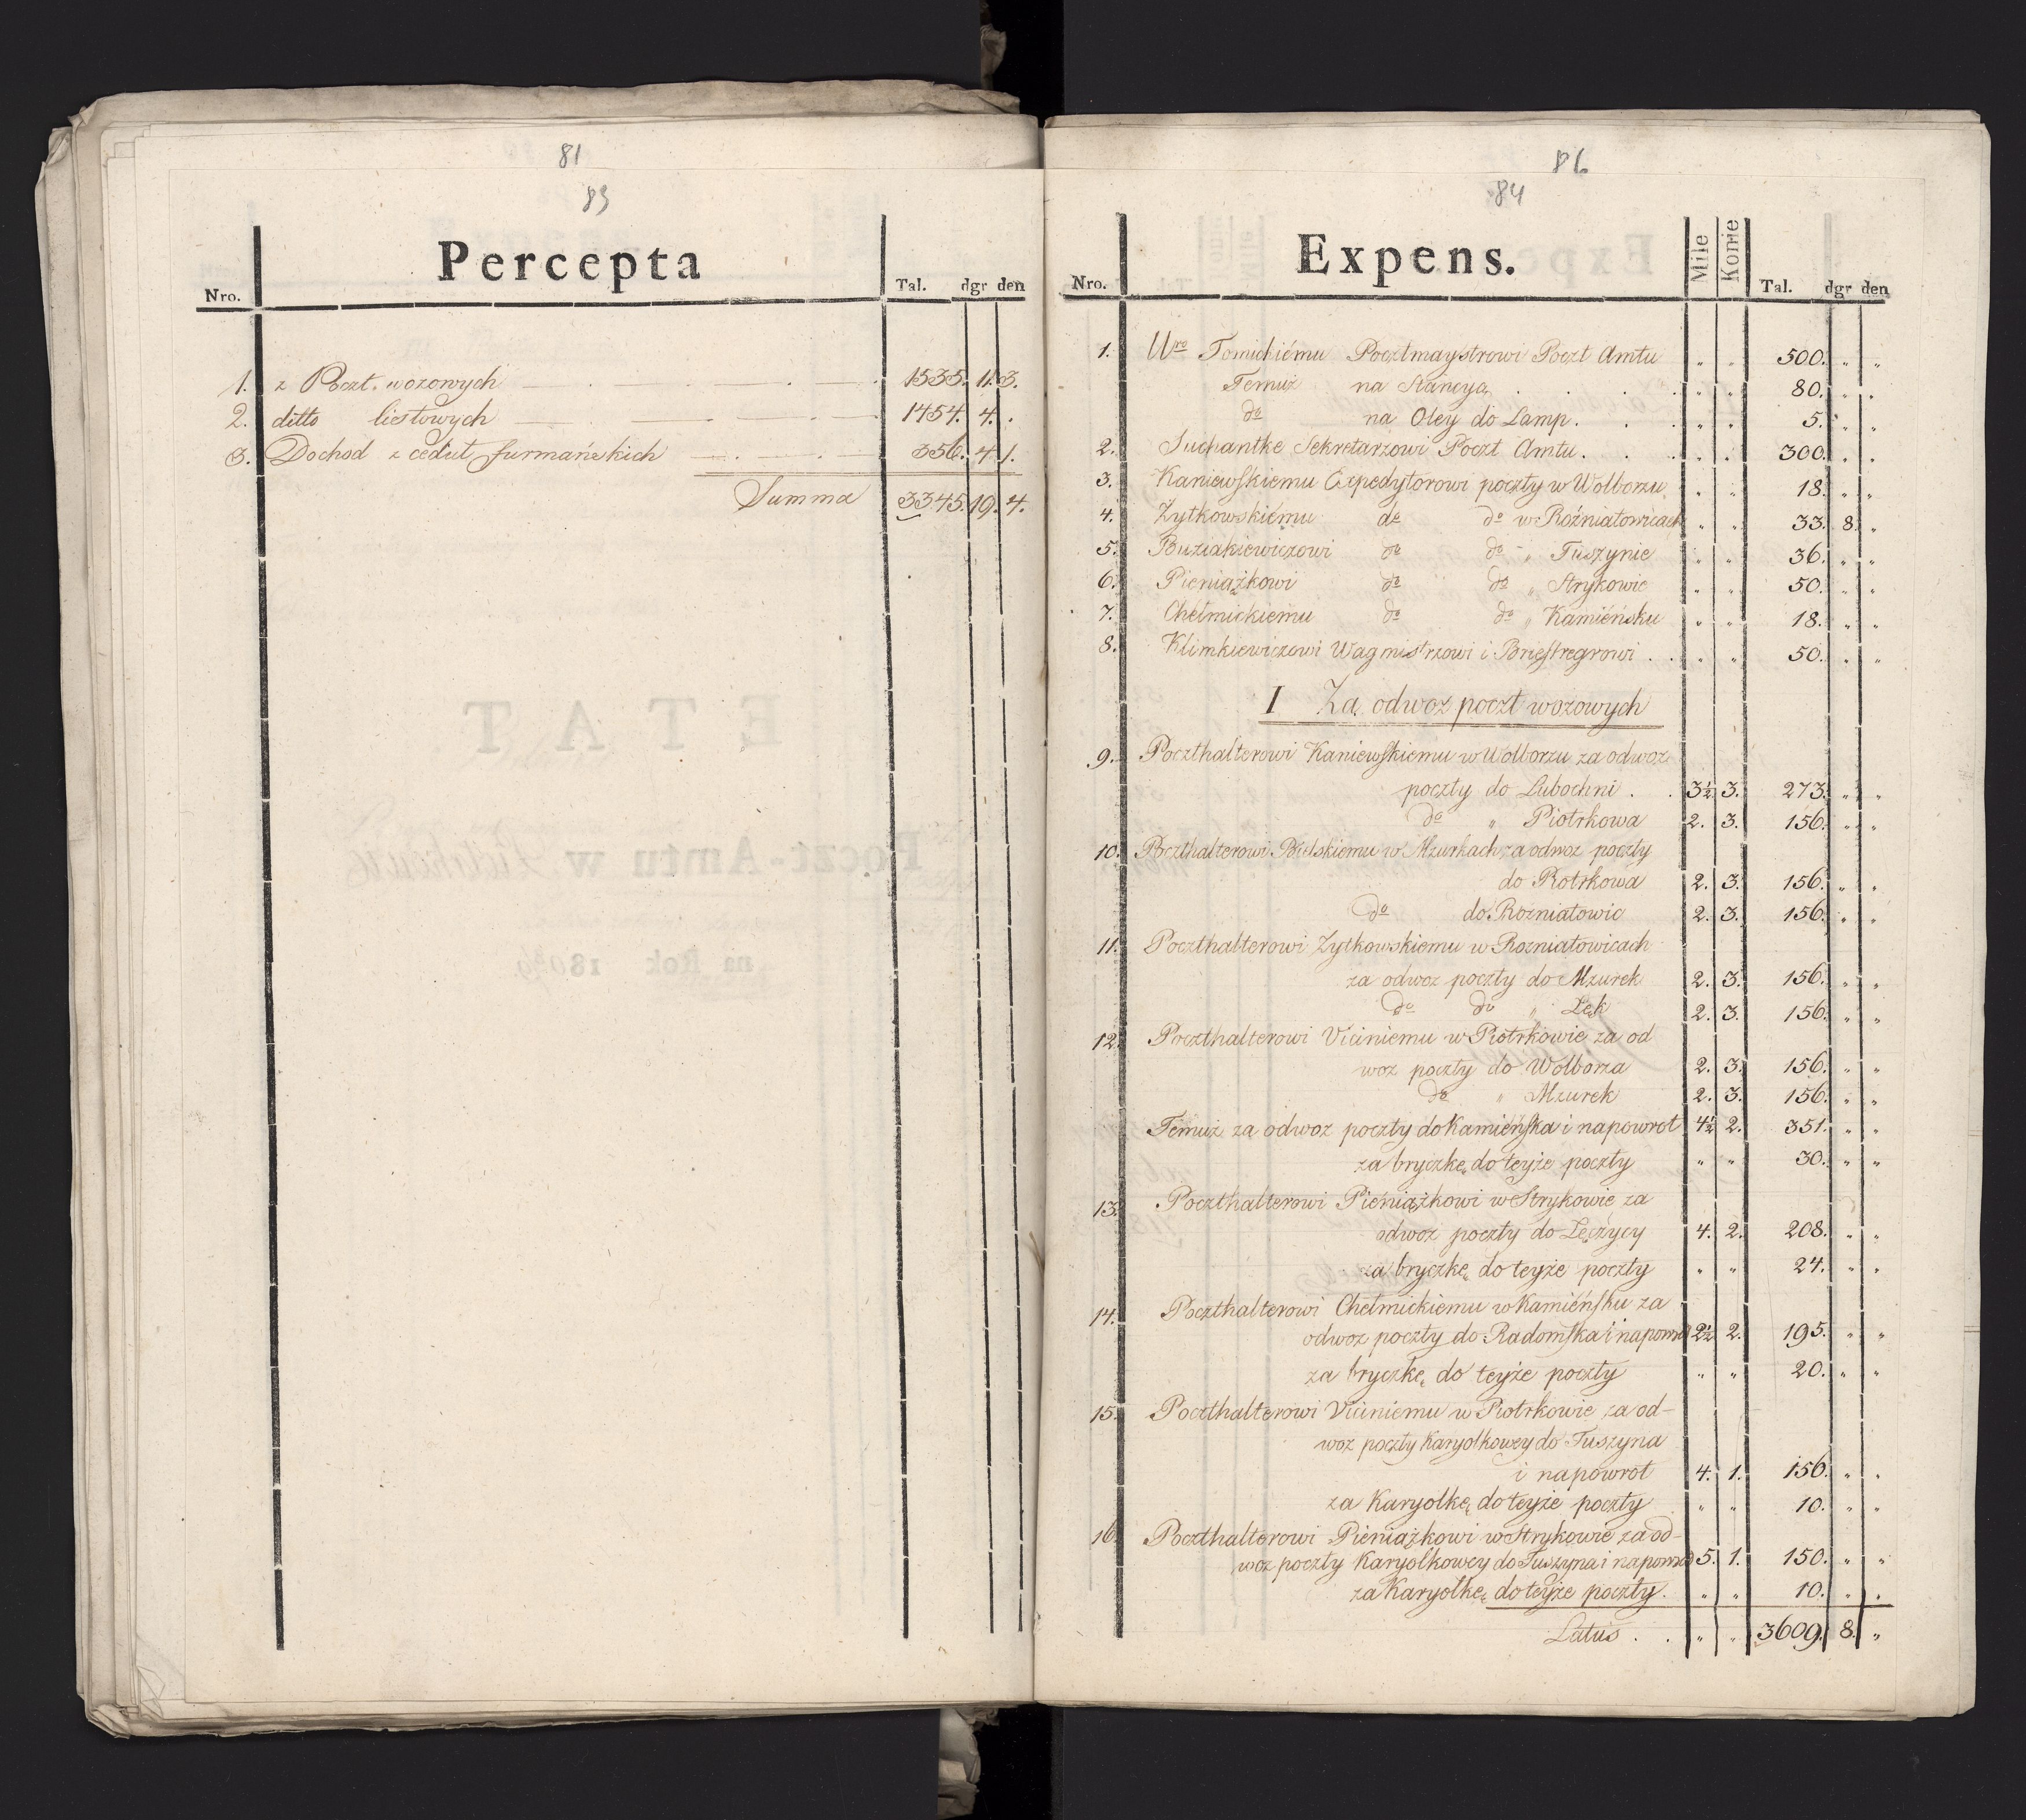 81
83
Percepta
Nro. Tal. dgr den
1. z Poczt. wozowych 1535. 11. 3.
2. ditto listowych 1454. 4. .
3. Dochod z cedut furmańskich 356. 4. 1.
Summa 3345. 19. 4.
86
84
Expens.
Nro. Mile Konie Tal. dgr den
1. Wro Tomickiému Pocztmaystrowi Poczt Amtu " " 500. " "
Temuż na Stancyą . . . " " 80. " "
do na Oley do Lamp . . . " " 5. " "
2. Suchantke Sekretarzowi Poczt Amtu . . . " " 300. " "
3. Kaniewskiemu Expedytorowi poczty w Wolborzu " " 18. " "
4. Żytkowskiému do do w Rożniatowicach " " 33. 8. "
5. Buziakiewiczowi do do " Tuszynie " " 36. " "
6. Pieniążkowi do do " Strykowie " " 50. " "
7. Chełmickiemu do do " Kamiéńsku " " 18. " "
8. Klimkiewiczowi Wagmistrzowi i Brieftregrowi . . " " 50. " "
I Za odwoz poczt wozowych
9. Poczthalterowi Kaniewskiemu w Wolborzu za odwoz
poczty do Lubochni . . 3½ 3. 273. " "
do " Piotrkowa 2. 3. 156. " "
10. Poczthalterowi Bielskiemu w Mzurkach za odwoz poczty
do Piotrkowa 2. 3. 156. " "
do do Rozniatowic 2. 3. 156. " "
11. Poczthalterowi Zytkowskiemu w Rozniatowicach
za odwoz poczty do Mzurek 2. 3. 156. " "
do do " Łęk 2. 3. 156. " "
12. Poczthalterowi Viciniemu w Piotrkowie za od
woz poczty do Wolborza 2. 3. 156. " "
do " Mzurek 2. 3. 156. " "
Temuż za odwoz poczty do Kamiéńska i napowrot 4½ 2. 351. " "
za bryczkę do teyże poczty " " 30. " "
13. Poczthalterowi Pieniążkowi w Strykowie za
odwoz poczty do Łęczycy 4. 2. 208. " "
za bryczkę do teyże poczty " " 24. " "
14. Poczthalterowi Chełmickiemu w Kamiéńsku za
odwoz poczty do Radomska i napowrot 2½ 2. 195. " "
za bryczkę do teyże poczty " " 20. " "
15. Poczthalterowi Viciniemu w Piotrkowie za od-
woz poczty Karyolkowey do Tuszyna
i napowrot 4. 1. 156. " "
za Karyolkę do teyże poczty " " 10. " "
16. Poczthalterowi Pieniążkowi w Strykowie za od-
woz poczty Karyolkowey do Tuszyna i napowrot 5. 1. 150. " "
za Karyolkę do teyże poczty . " " 10. " "
Latus . . " " 3609. 8. "